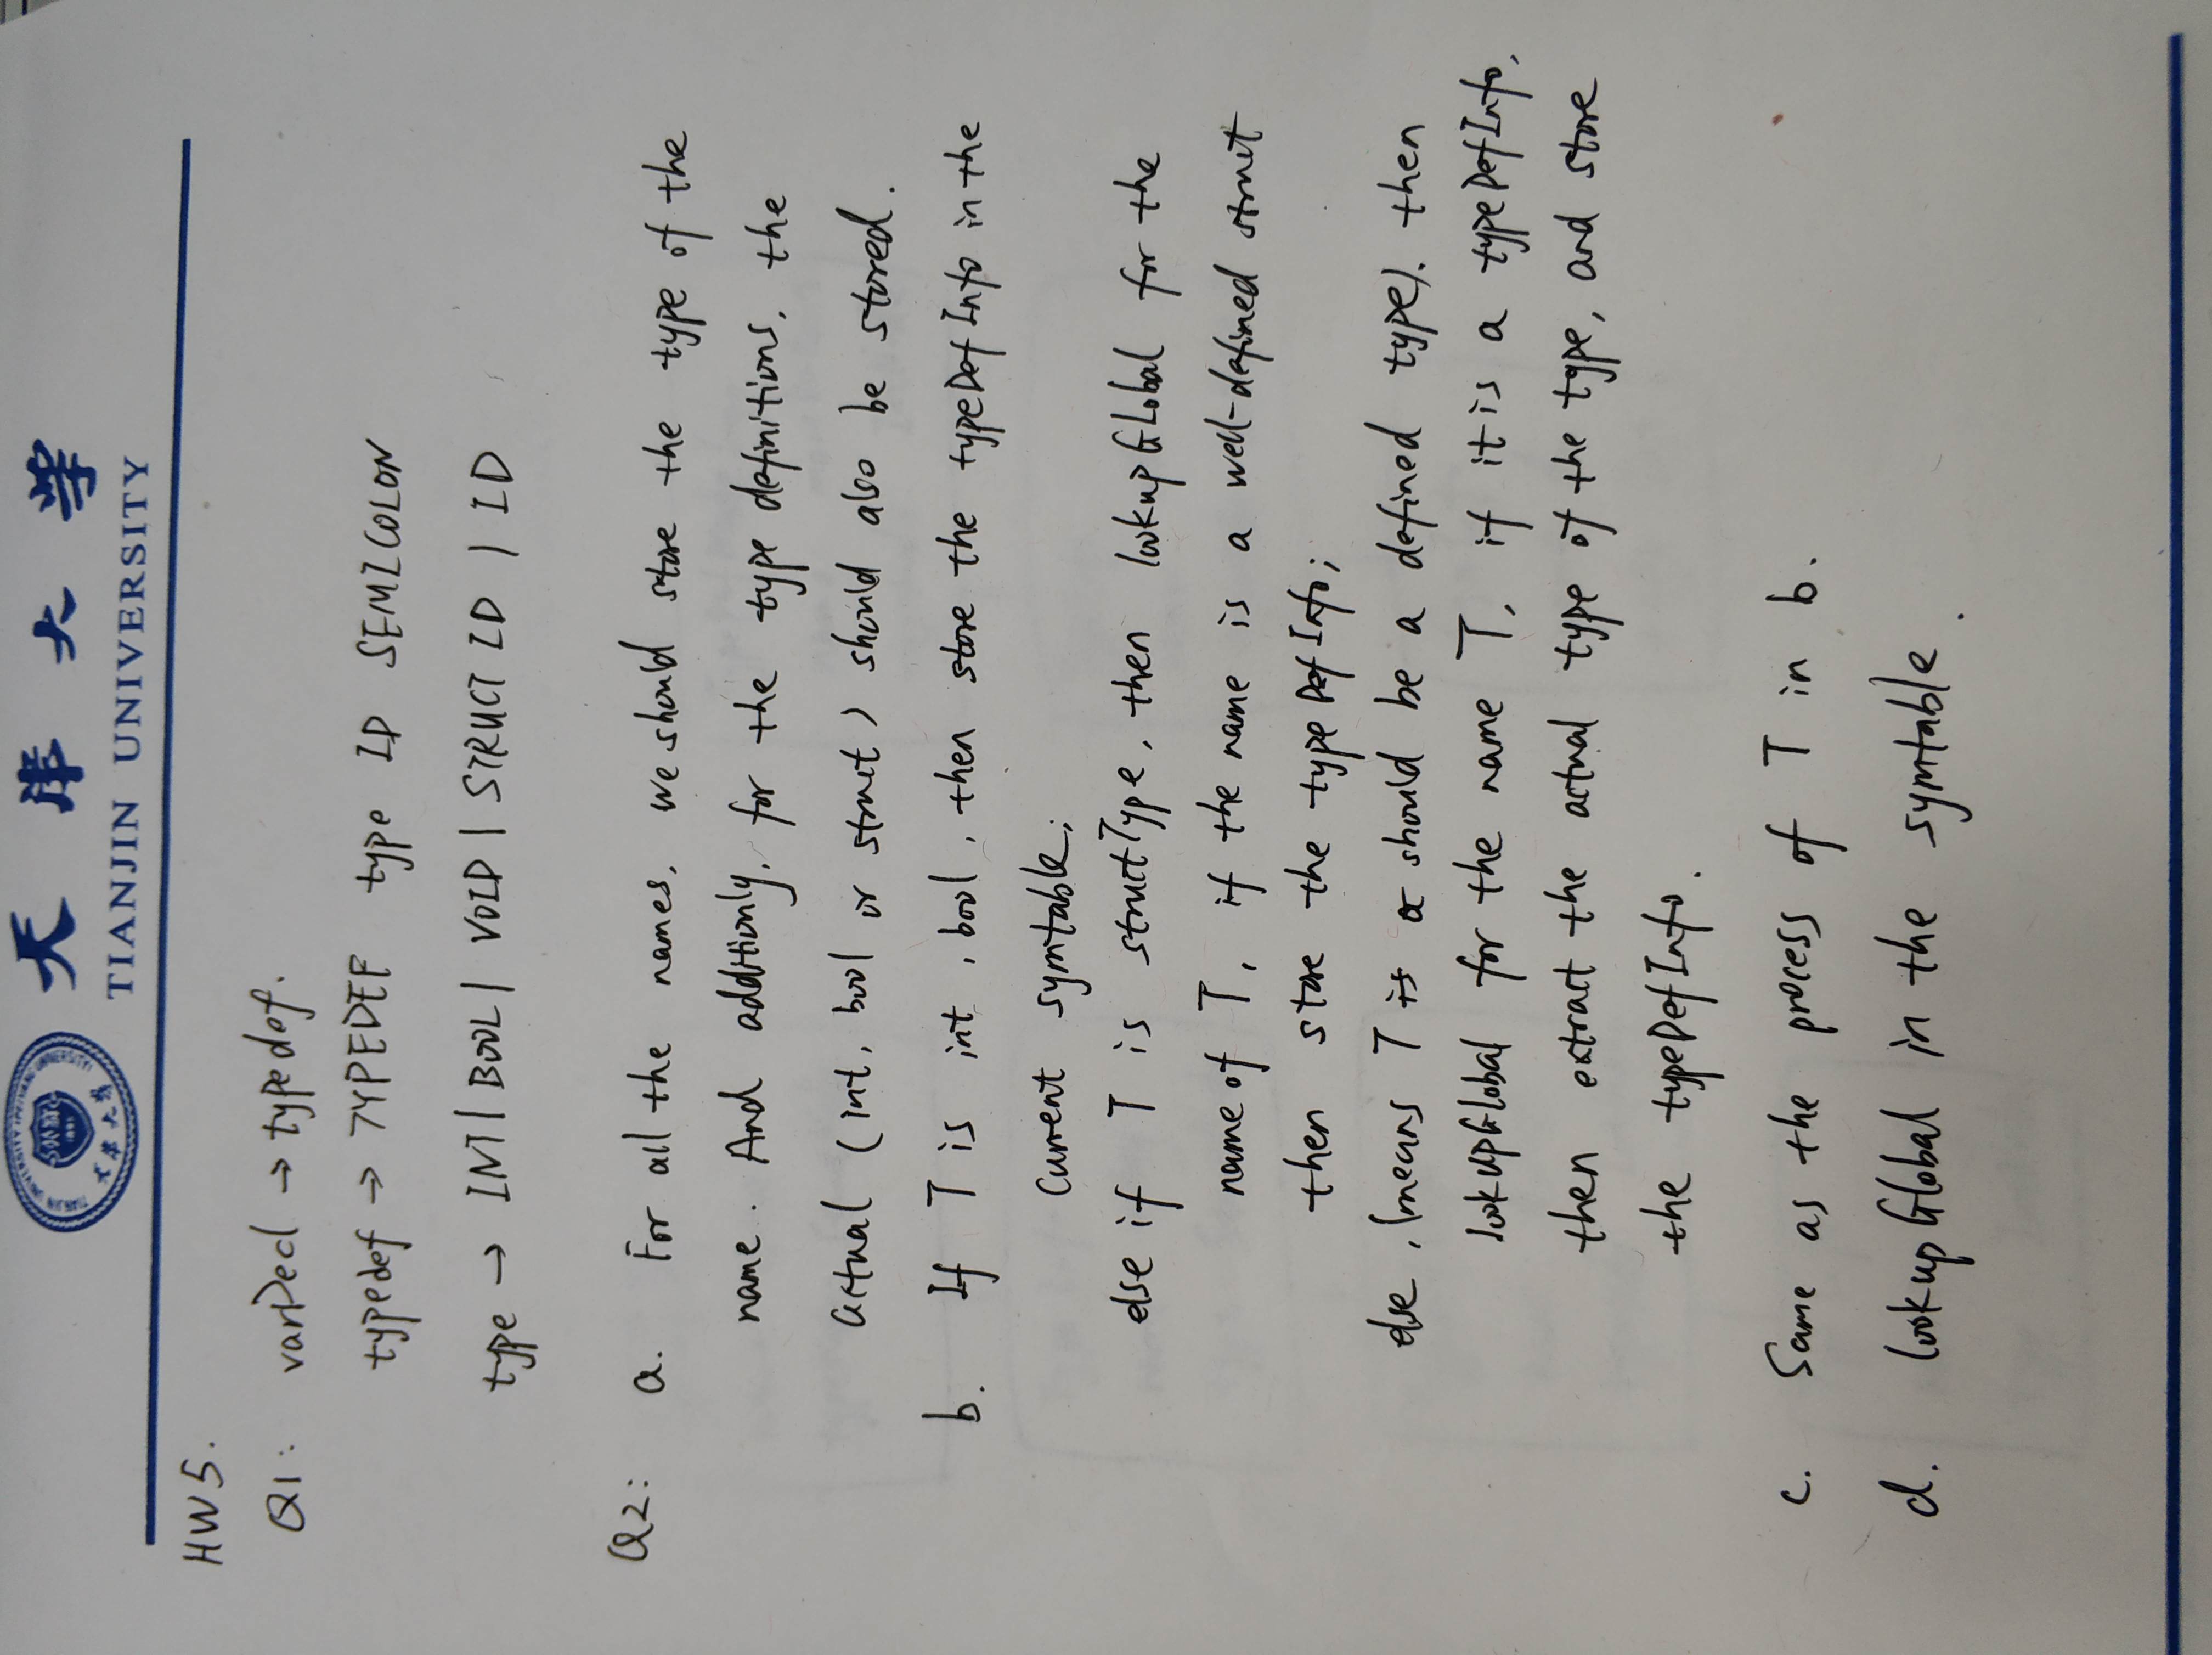 天津大学
TIANJIN UNIVERSITY
HW5.
Q1: varDecl → typedef.
typedef → TYPEDEF type ID SEMICOLON
type → INT | BOOL | VOID | STRUCT ID | ID
Q2: a. For all the names, we should store the type of the
name. And additionly, for the type definitions, the
actual (int, bool or struct) should also be stored.
b. If T is int, bool, then store the typeDefInfo in the
current symtable;
else if T is structType, then lookupGlobal for the
name of T, if the name is a well-defined struct
then store the typeDefInfo;
else, (means T should be a defined type). then
lookupGlobal for the name T, if it is a typeDefInfo,
then extract the actual type of the type, and store
the typeDefInfo.
c. Same as the process of T in b.
d. lookupGlobal in the symtable.